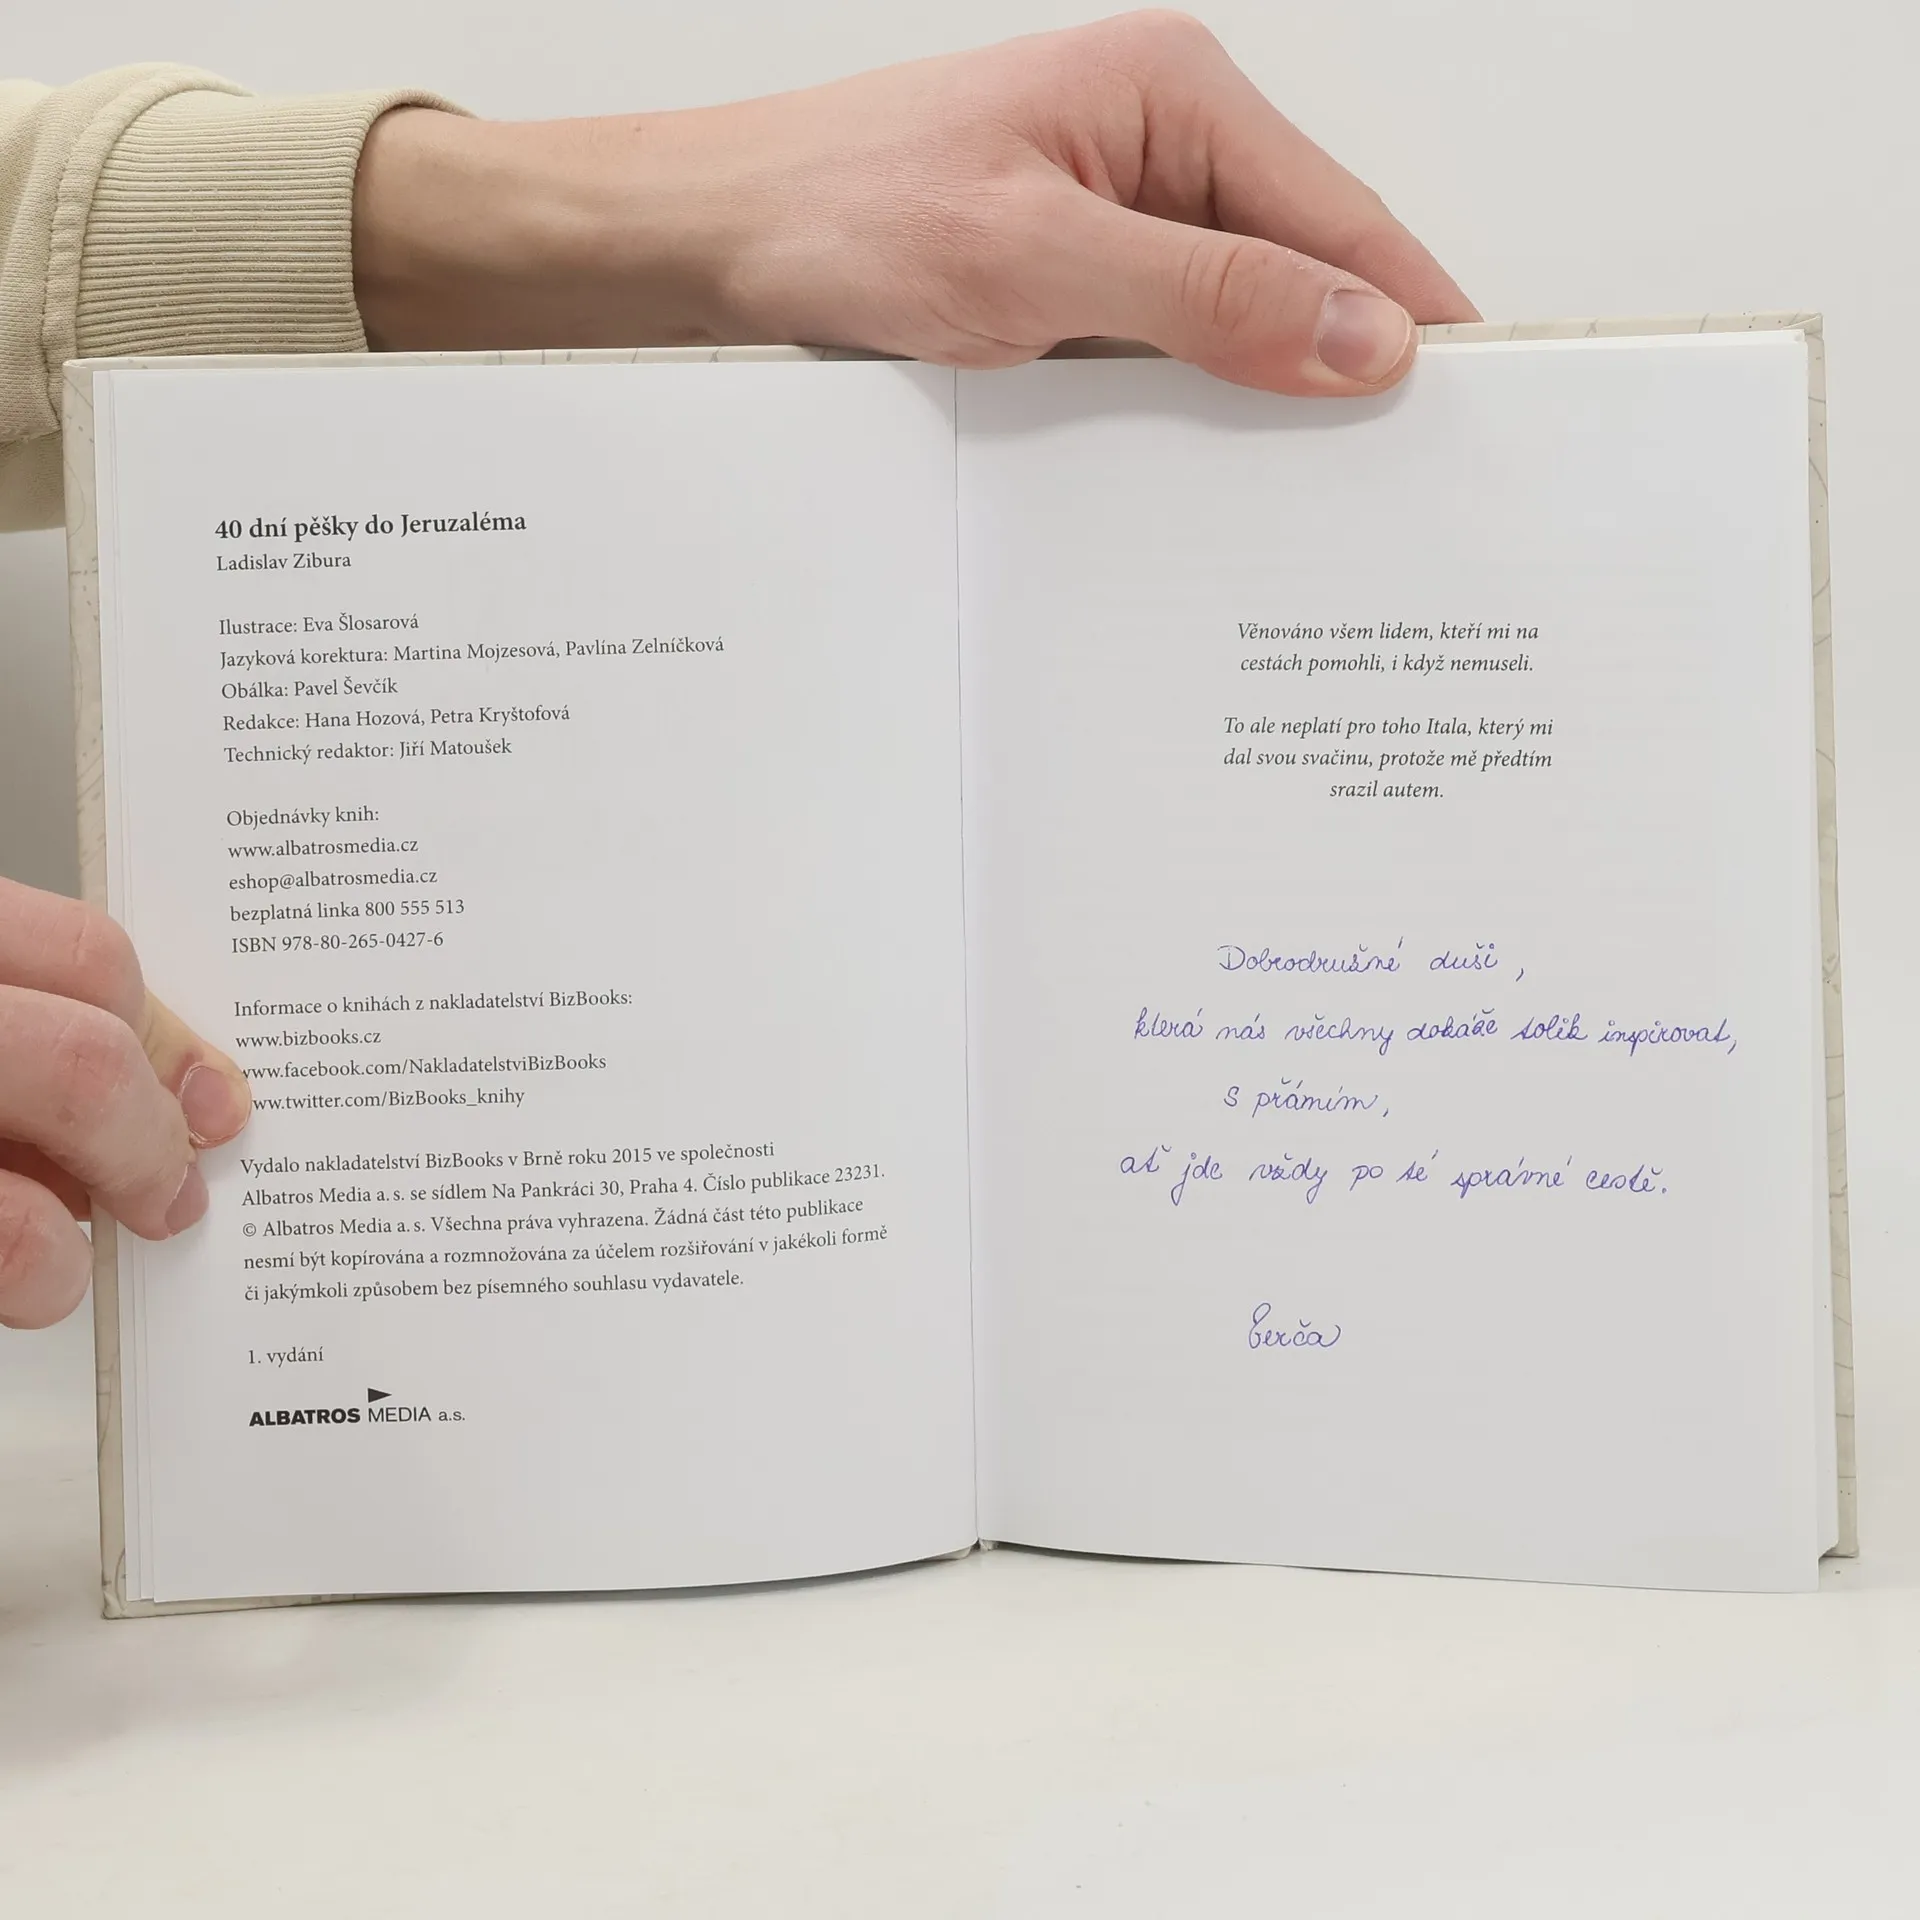 40 dní pěšky do Jeruzaléma
Ladislav Zibura
Ilustrace: Eva Šlosarová
Jazyková korektura: Martina Mojzesová, Pavlína Zelníčková
Obálka: Pavel Ševčík
Redakce: Hana Hozová, Petra Kryštofová
Technický redaktor: Jiří Matoušek
Objednávky knih:
www.albatrosmedia.cz
eshop@albatrosmedia.cz
bezplatná linka 800 555 513
ISBN 978-80-265-0427-6
Informace o knihách z nakladatelství BizBooks:
www.bizbooks.cz
www.facebook.com/NakladatelstviBizBooks
ww.twitter.com/BizBooks_knihy
Vydalo nakladatelství BizBooks v Brně roku 2015 ve společnosti
Albatros Media a. s. se sídlem Na Pankráci 30, Praha 4. Číslo publikace 23231.
© Albatros Media a. s. Všechna práva vyhrazena. Žádná část této publikace
nesmí být kopírována a rozmnožována za účelem rozšiřování v jakékoli formě
či jakýmkoli způsobem bez písemného souhlasu vydavatele.
1. vydání
ALBATROS MEDIA a.s.
Věnováno všem lidem, kteří mi na
cestách pomohli, i když nemuseli.
To ale neplatí pro toho Itala, který mi
dal svou svačinu, protože mě předtím
srazil autem.
Dobrodrušné duši,
která nás všechny dokáže tolik inspirovat,
s přáním,
ať jde vždy po té správné cestě.